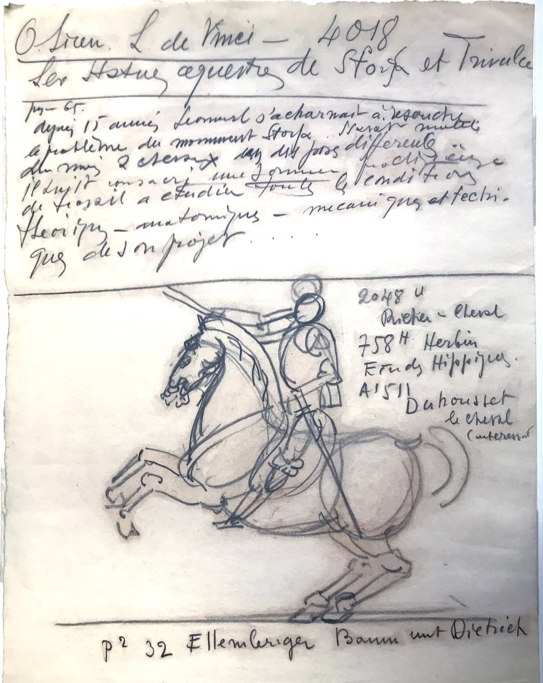 O Siren. L de Vinci — 4018
Les Statues equestres de Sforza et Trivulce
depuis 15 années Léonard s'acharnait à résoudre
le problème du monument Sforza. Il avait
2 chevaux dix dix poses différentes
Il avait consacré une somme
de travail à étudier toutes les conditions
théoriques — anatomiques — mecaniques et techni-
ques de son projet . . . .
2048 u
Richer — Cheval
758 H Herbin
Etudes Hippiques.
A1511
Duhousset
le cheval
(interessant
p² 32 Ellemberiger Baum unt Dietrich